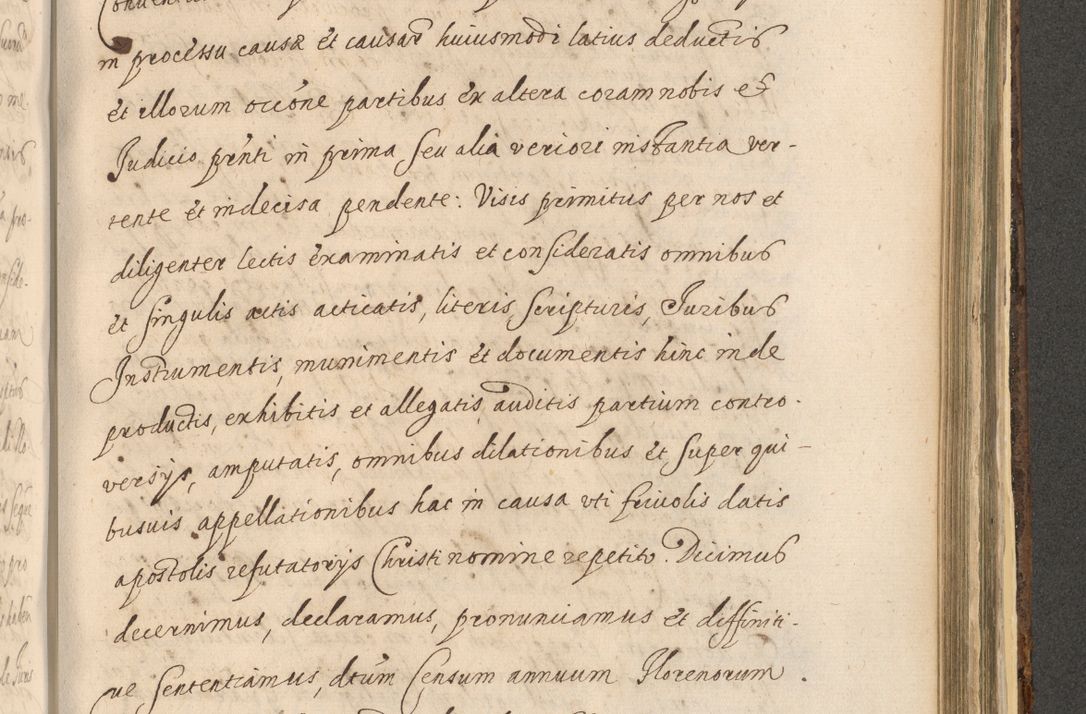 in processu causæ et causar̄ huiusmodi latius deductis
et illorum occōne partibus ex altera coram nobis et
Judicio pr̃nti in prima seu alia veriori instantia ver-
tente et indecisa pendente: Visis primitus per nos et
diligenter lectis examinatis et consideratis omnibus
et singulis actis acticatis, literis, scripturis, Juribus
Instrumentis, munimentis et documentis hinc inde
productis, exhibitis et allegatis, auditis partium contro-
versijs, amputatis, omnibus dilationibus et super qui-
busuis appellationibus hac in causa vti friuolis datis
apostolis refutatorijs Christi nomine repetito. Dicimus
decernimus, declaramus, pronunciamus et diffiniti-
ue sententiamus, dctũm Censum annuum Florenorum